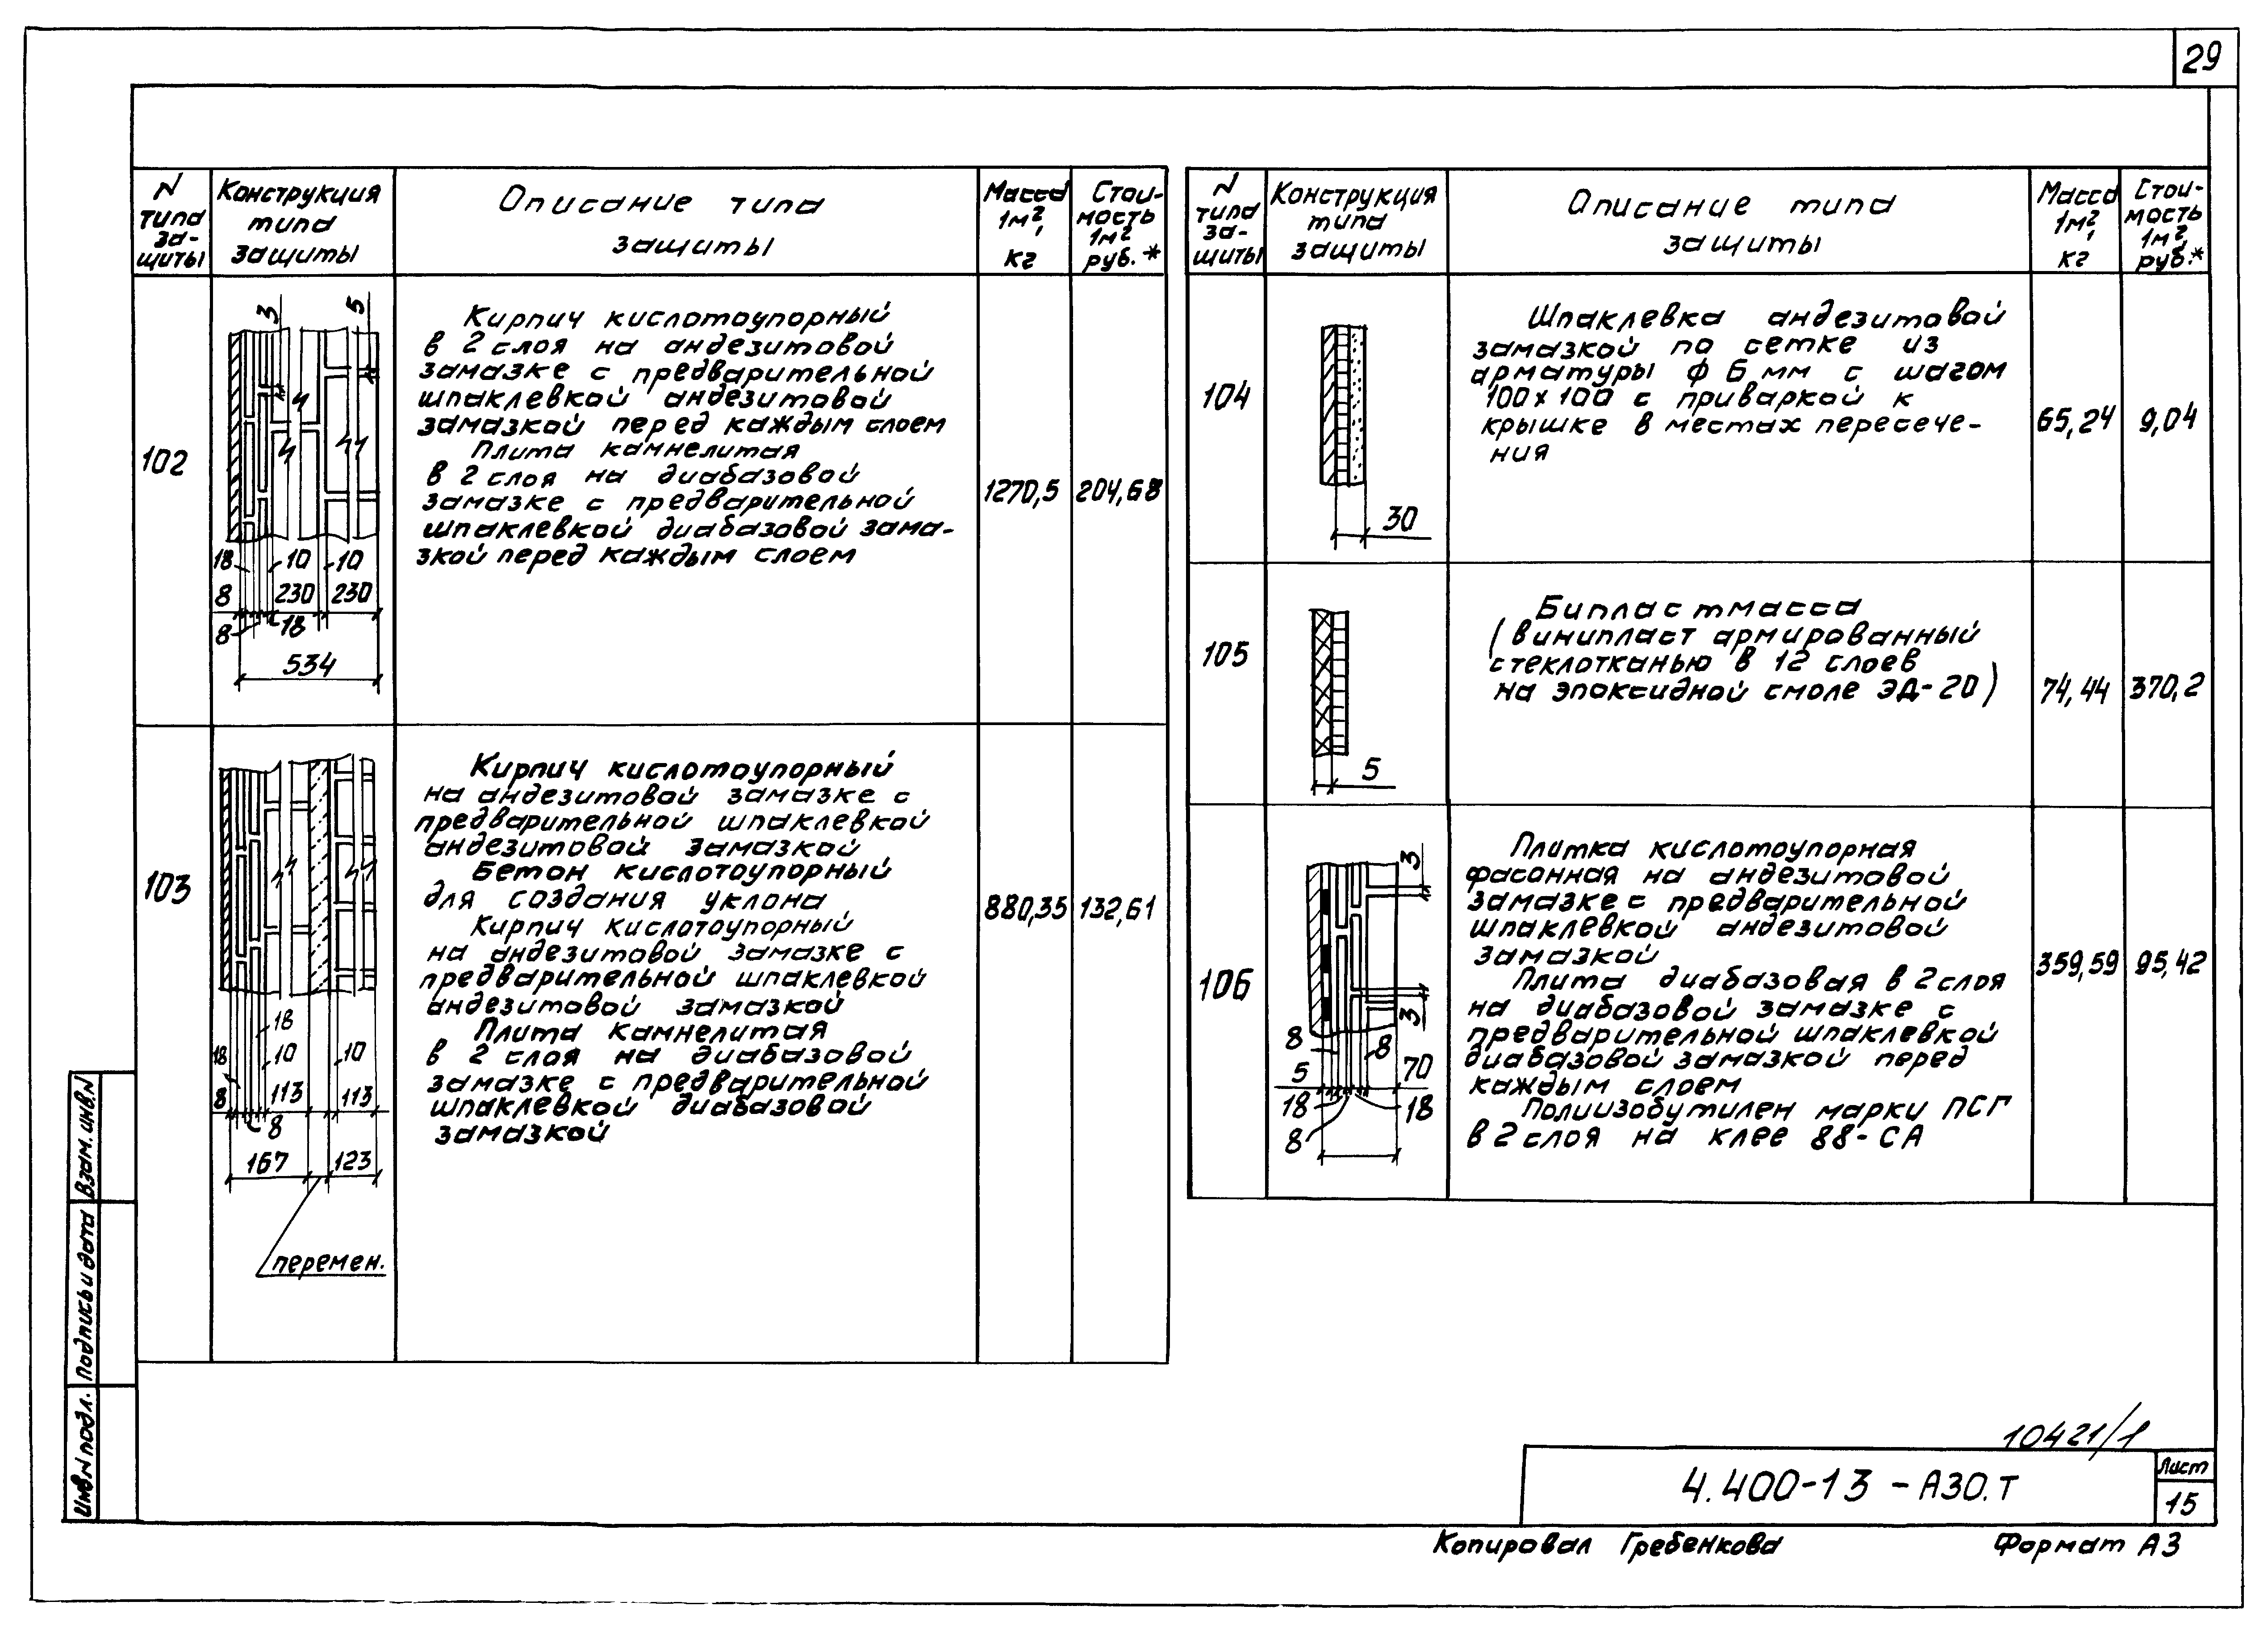 29
N типа за- щиты
Конструкция типа защиты
Описание типа защиты
Масса 1м², кг
Стои- мость 1м² руб.*
102
3
5
18
10
10
8
230
230
8
18
534
Кирпич кислотоупорный
в 2 слоя на андезитовой
замазке с предварительной
шпаклевкой андезитовой
замазкой перед каждым слоем
Плита камнелитая
в 2 слоя на диабазовой
замазке с предварительной
шпаклевкой диабазовой зама-
зкой перед каждым слоем
1270,5
204,68
103
18
18
10
10
8
113
113
8
167
123
перемен.
Кирпич кислотоупорный
на андезитовой замазке с
предварительной шпаклевкой
андезитовой замазкой
Бетон кислотоупорный
для создания уклона
Кирпич кислотоупорный
на андезитовой замазке с
предварительной шпаклевкой
андезитовой замазкой
Плита камнелитая
в 2 слоя на диабазовой
замазке с предварительной
шпаклевкой диабазовой
замазкой
880,35
132,61
N типа за- щиты
Конструкция типа защиты
Описание типа защиты
Масса 1м², кг
Стои- мость 1м², руб.*
104
30
Шпаклевка андезитовой
замазкой по сетке из
арматуры ф 6 мм с шагом
100х100 с приваркой к
крышке в местах пересече-
ния
65,24
9,04
105
5
Бипластмасса
(винипласт армированный
стеклотканью в 12 слоев
на эпоксидной смоле ЭД-20)
74,44
370,2
106
3
3
8
8
5
70
18
18
8
Плитка кислотоупорная
фасонная на андезитовой
замазке с предварительной
шпаклевкой андезитовой
замазкой
Плита диабазовая в 2 слоя
на диабазовой замазке с
предварительной шпаклевкой
диабазовой замазкой перед
каждым слоем
Полиизобутилен марки ПСГ
в 2 слоя на клее 88-СА
359,59
95,42
Взам. инв. N
Подпись и дата
Инв. N подл.
10421/1
4.400-13 - А30.Т
Лист
15
Копировал Гребенкова
Формат А3